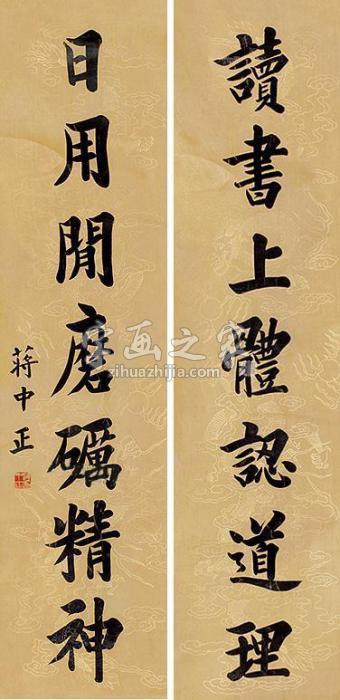 讀書上體認道理
日用閒磨礪精神
蔣中正
字画之家
zihuazhijia.com